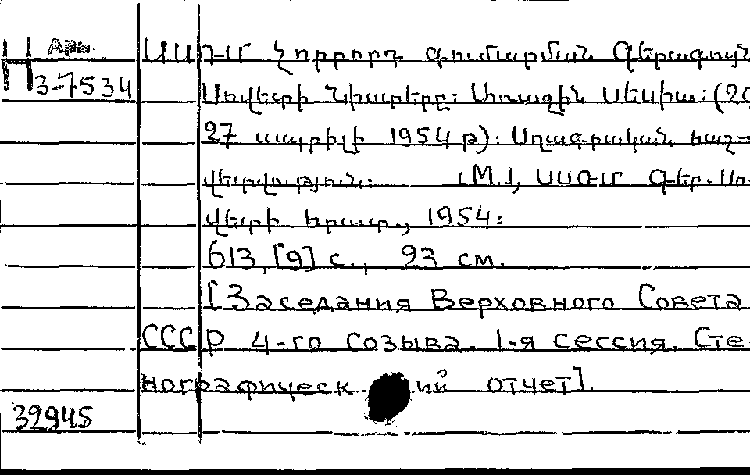 Арм.
Н 3-7534
ՍՍՌՄ Չորրորդ գումարման Գերագույն
Սովետի Նիստերը: Առաջին սեսիա: (20
27 ապրիլի 1954 թ): Սղագրական հաշ-
վետվություն: [М.], ՍՍՌՄ Գեր. Սո
վետի հրատ., 1954:
613, [9] с., 23 см.
[Заседания Верховного Совета
СССР 4-го созыва. 1-я сессия. Сте-
нографическ ий отчет].
32945